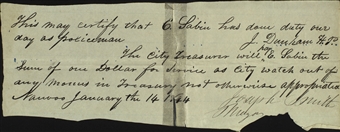 This may certify that E. Sabin has done duty one
day as policeman
J. Dunham H.P.
The City Treasurer will pay E. Sabin the
Sum of one Dollar for Service as City watch out of
any monies in Treasury not otherwise appropriated
Nauvoo January the 14 1844
Joseph Smith
Mayor